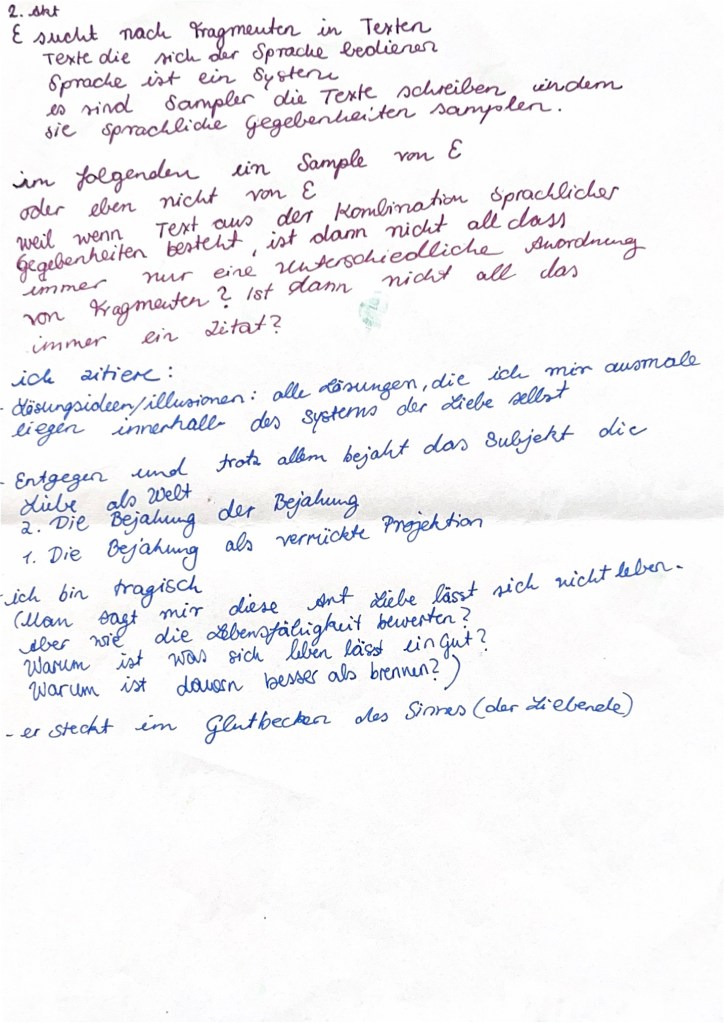 2. Akt
E sucht nach Fragmenten in Texten
Texte die sich der Sprache bedienen
Sprache ist ein System
es sind Sampler die Texte schreiben indem
sie sprachliche Gegebenheiten samplen.
im folgenden ein Sample von E
oder eben nicht von E
weil wenn Text aus der Kombination sprachlicher
Gegebenheiten besteht, ist dann nicht all dass
immer nur eine unterschiedliche Anordnung
von Fragmenten? Ist dann nicht all das
immer ein Zitat?
ich zitiere:
- Lösungsideen/illusionen: alle Lösungen, die ich mir ausmale
liegen innerhalb des Systems der Liebe selbst
- Entgegen und trotz allem bejaht das Subjekt die
Liebe als Welt
2. Die Bejahung der Bejahung
1. Die Bejahung als verrückte Projektion
- ich bin tragisch
(Man sagt mir diese Art Liebe lässt sich nicht leben.
Aber wie die Lebensfähigkeit bewerten?
Warum ist was sich leben lässt ein Gut?
Warum ist dauern besser als brennen?)
- er steckt im Glutbecken des Sinnes (der Liebende)